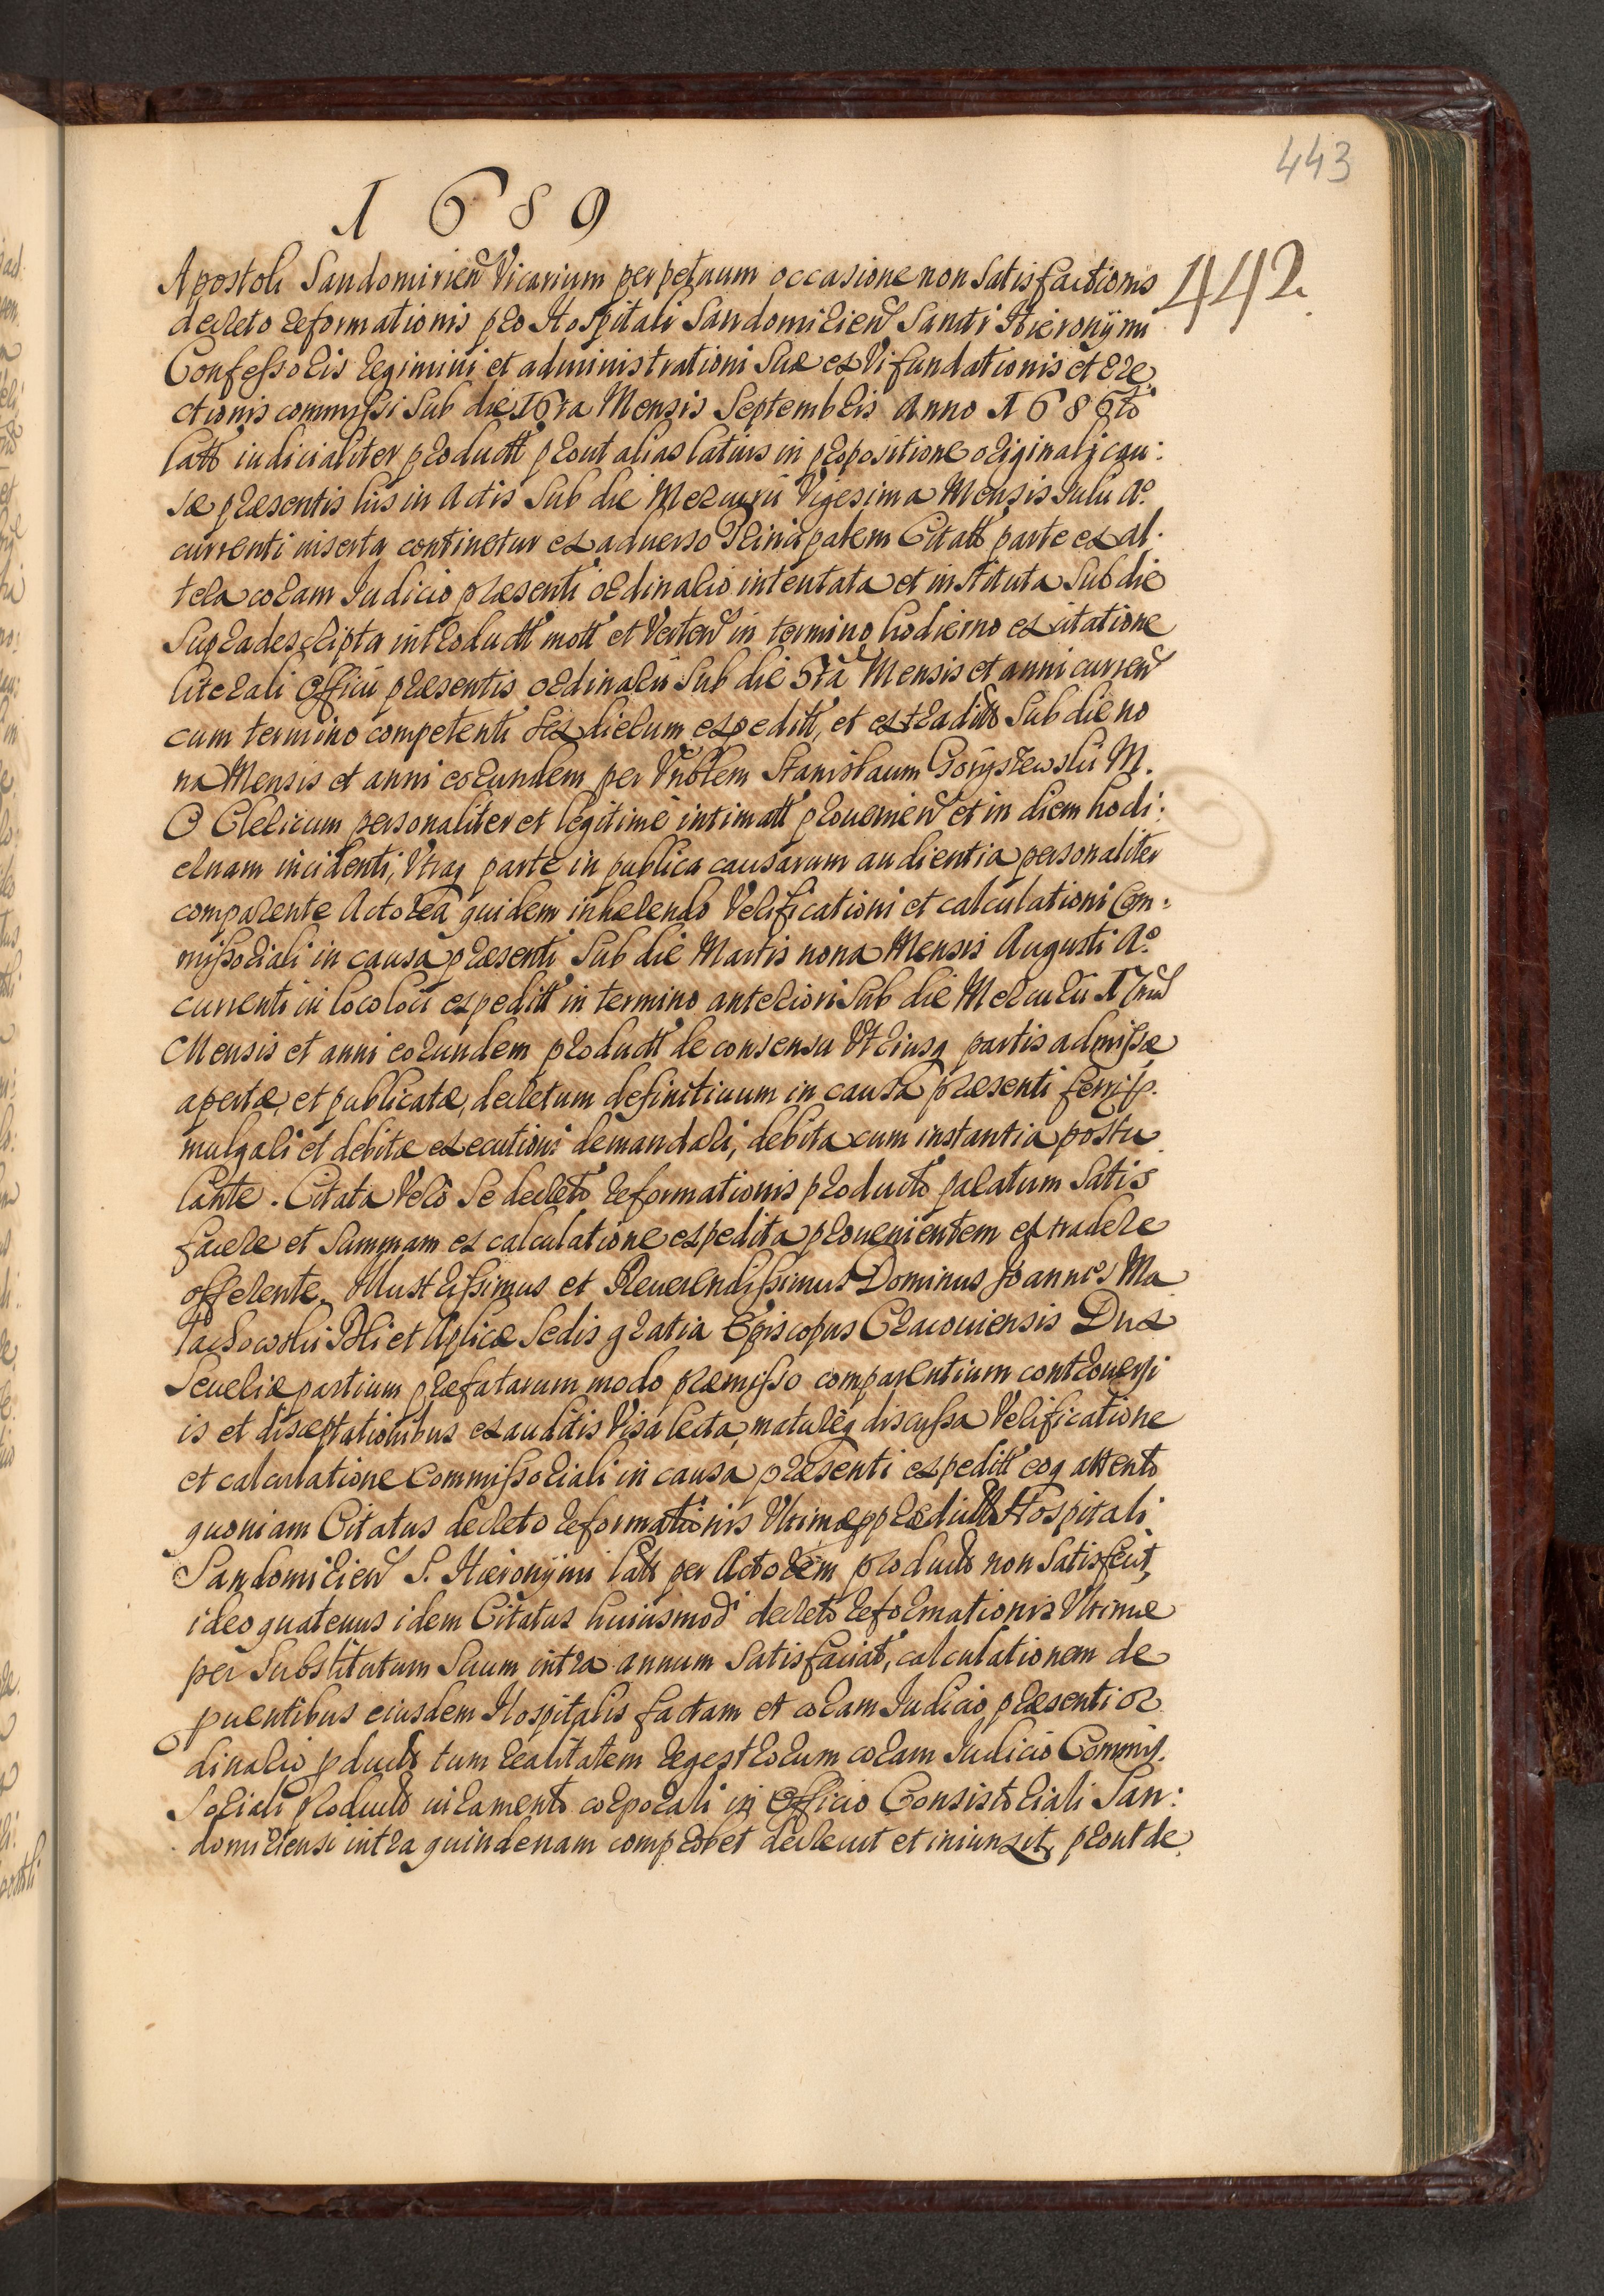 443
1689
442
Apostoli Sandomirien Vicarium perpetuum occasione non Satisfactionis
decreto reformationis pro Hospitali Sandomirien Sancti Hieronÿmi
Confessoris regimini et administrationi Suæ ex Vi fundationis et Ere
ctionis commissi Sub die 16ta Mensis Septembris Anno 1686to
latt iudicialiter productt prout alias latius in propositione originali cau:
sæ præsentis his in Actis Sub die Mercurii Vigesima Mensis Iulii Aº
currenti inserta continetur ex adverso Principalem Citatt parte ex al:
tera coram Iudicio præsenti ordinario intentata et instituta Sub die
Supradescripta introductt mott et Verten in termino hodierno ex citatione
literali Officii præsentis ordinarii Sub die 5ta Mensis et anni curren
cum termino competenti sex dierum expeditt, et extradito Sub die no
na Mensis et anni eorundem per Vnblem Stanislaum Gorÿszewski M.
O Clericum personaliter et legitime intimatt provenien et in diem hodi:
ernam incidenti, Vtraq parte in publica causarum audientia personaliter
comparente Actorea quidem inhærendo Verificationi et calculationi Com:
missoriali in causa præsenti Sub die Martis nona Mensis Augusti Aº
currenti in loco loci expeditt in termino anteriori Sub die Mercurii 17ma
Mensis et anni eorundem productt de consensu Vtriusq partis admissæ
apertæ, et publicatæ, decretum definitivum in causa præsenti ferri p.
mulgari et debitæ executioni demandari, debita cum instantia postu
lante. Citata Vero Se decreto reformationis producto paratum Satis
facere et Summam ex calculatione expedita provenientem extradere
offerente. Illustrissimus et Reverendissimus Dominus Joannes Ma
lachowski Dei et Aplicæ Sedis gratia Episcopus Cracoviensis Dux
Severiæ partium præfatarum modo præmisso comparentium controversi
is et disceptationibus exauditis Visa lecta, matureq discussa Verificatione
et calculatione Commissoriali in causa præsenti expeditt eoq attento
quoniam Citatus decreto reformationis Vltimæ pro prædicto Hospitali
Sandomirien S. Hieronÿmi latt per Actorem producto non Satisfecit,
ideo quatenus idem Citatus huiusmodi decreto reformationis Vltimæ
per Substitutum Suum intra annum Satisfaciat, calculationem de
proventibus eiusdem Hospitalis factam et coram Iudicio præsenti or
dinario pducto tum realitatem regestrorum coram Iudicio Commis.
soriali producto iuramento corporali in Officio Consistoriali San:
domiriensi intra quindenam comprobet decrevit et iniunxit, prout de